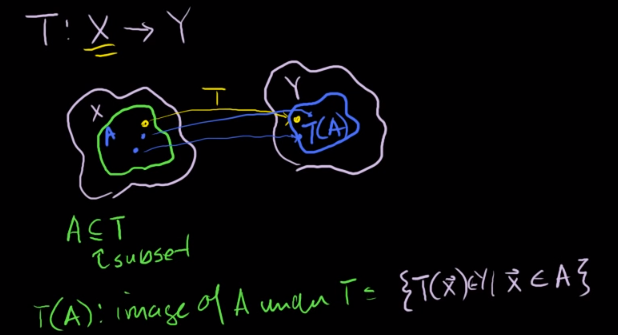 T: X → Y
T
X
Y
A
T(A)
A ⊆ T
↑ subset
T(A): image of A under T = {T(x⃗) ∈ Y | x⃗ ∈ A}